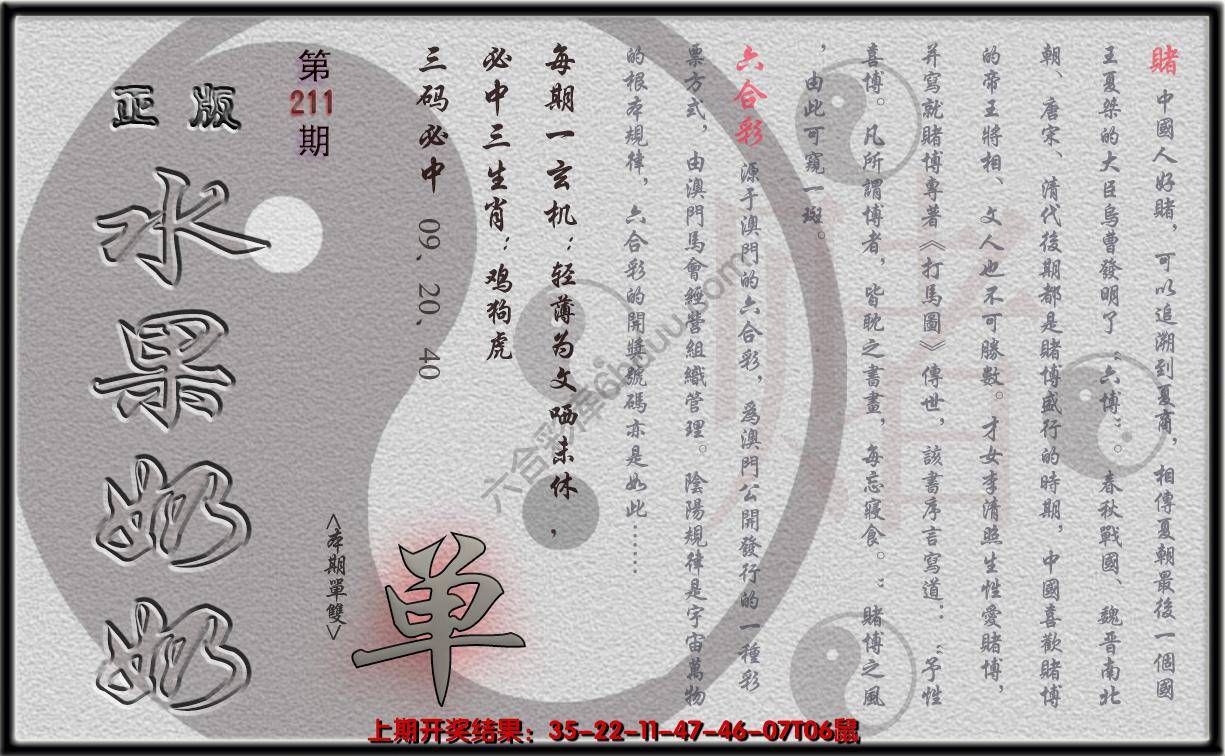 賭 中國人好賭，可以追溯到夏商，相傳夏朝最後一個國
王夏桀的大臣烏曹發明了“六博”。春秋戰國、魏晋南北
朝、唐宋、清代後期都是賭博盛行的時期，中國喜歡賭博
的帝王將相、文人也不可勝數。才女李清照生性愛賭博，
并寫就賭博專著《打馬圖》傳世，該書序言寫道：“予性
喜博。凡所謂博者，皆耽之書畫，每忘寢食。”賭博之風
，由此可窺一斑。
六合彩 源于澳門的六合彩，爲澳門公開發行的一種彩
票方式，由澳門馬會經營組織管理。陰陽規律是宇宙萬物
的根本規律，六合彩的開獎號碼亦是如此……
每期一玄机：轻薄为文哂未休，
必中三生肖：鸡狗虎
三码必中 09、20、40
第
211
期
正版
水果奶奶
<本期單雙>
单
六合彩库6huuu.com
上期开奖结果：35-22-11-47-46-07T06鼠